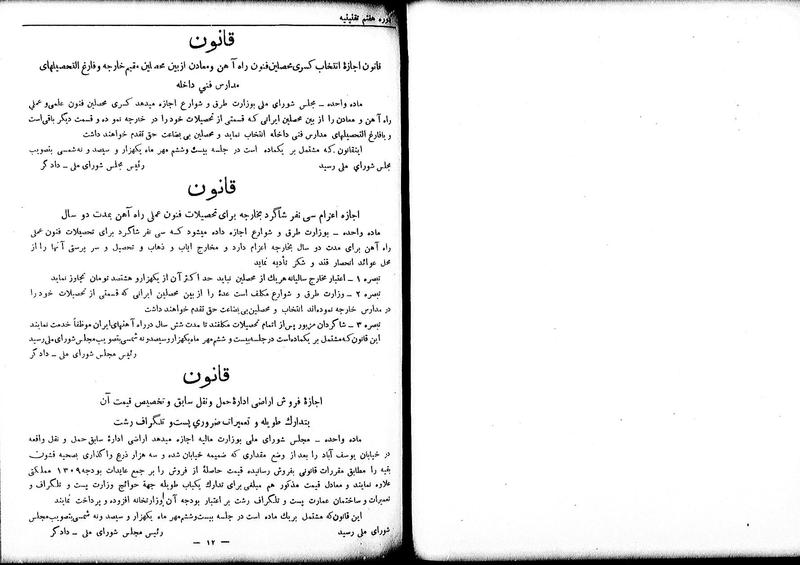 دوره هفتم تقنینیه
قانون
قانون اجازهٔ انتخاب کسری محصلین فنون راه آهن ومعادن ازبین محصلین مقیم خارجه وفارغ التحصیلهای
مدارس فنی داخله
ماده واحده ـ مجلس شورای ملی بوزارت طرق و شوارع اجازه میدهد کسری محصلین فنون علمی و عملی
راه آهن و معادن را از بین محصلین ایرانی که قسمتی از تحصیلات خود را در خارجه نموده و قسمت دیگر باقی است
و یا فارغ التحصیلهای مدارس فنی داخله انتخاب نماید و محصلین بی بضاعت حق تقدم خواهند داشت
اینقانون که مشتمل بر یکماده است در جلسه بیست وششم مهر ماه یکهزار و سیصد و نه شمسی بتصویب
مجلس شورای ملی رسید رئیس مجلس شورای ملی ـ دادگر
قانون
اجازه اعزام سی نفر شاگرد بخارجه برای تحصیلات فنون عملی راه آهن بمدت دو سال
ماده واحده ـ بوزارت طرق و شوارع اجازه داده میشود که سی نفر شاگرد برای تحصیلات فنون عملی
راه آهن برای مدت دو سال بخارجه اعزام دارد و مخارج ایاب و ذهاب و تحصیل و سر پرستی آنها را از
محل عوائد انحصار قند و شکر تأدیه نماید
تبصره ۱ ـ اعتبار مخارج سالیانه هریك از محصلین نباید حد اکثر آن از یکهزار و هشتصد تومان تجاوز نماید
تبصره ۲ ـ وزارت طرق و شوارع مکلف است عدهٔ را از بین محصلین ایرانی که قسمتی از تحصیلات خود را
در مدارس خارجه نموده اند انتخاب و محصلین بی بضاعت حق تقدم خواهند داشت
تبصره ۳ ـ شاگردان مزبور پس از اتمام تحصیلات مکلفند تا مدت شش سال در راه آهنهای ایران موظفاً خدمت نمایند
این قانون که مشتمل بر یکماده است در جلسه بیست و ششم مهر ماه یکهزار و سیصد و نه شمسی بتصویب مجلس شورای ملی رسید
رئیس مجلس شورای ملی ـ دادگر
قانون
اجازهٔ فروش اراضی ادارهٔ حمل و نقل سابق و تخصیص قیمت آن
بتدارك طویله و تعمیرات ضروری پست و تلگراف رشت
ماده واحده ـ مجلس شورای ملی بوزارت مالیه اجازه میدهد اراضی ادارهٔ سابق حمل و نقل واقعه
در خیابان یوسف آباد را بعد از وضع مقداری که ضمیمه خیابان شده و سه هزار ذرع واگذاری بصحیه قشون
بقیه را مطابق مقررات قانونی بفروش رسانیده قیمت حاصلهٔ از فروش را بر جمع عایدات بودجه ۱۳۰۹ مملکتی
علاوه نمایند و معادل قیمت مذکور هم مبلغی برای تدارك یکباب طویله جهة حوائج وزارت پست و تلگراف و
تعمیرات و ساختمان عمارت پست و تلگراف رشت بر اعتبار بودجه آن وزارتخانه افزوده و پرداخت نمایند
این قانون که مشتمل بریك ماده است در جلسه بیست وششم مهر ماه یکهزار و سیصد ونه شمسی بتصویب مجلس
شورای ملی رسید رئیس مجلس شورای ملی ـ دادگر
ـ ۱۲ ـ